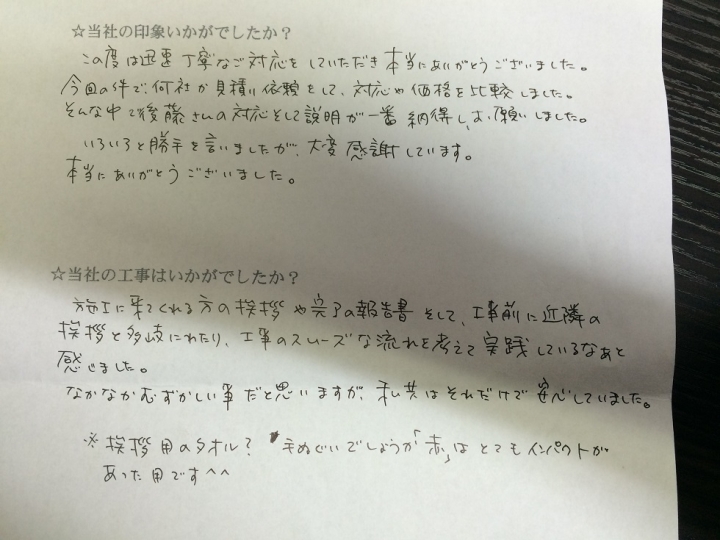 ☆当社の印象いかがでしたか?
この度は迅速丁寧なご対応をしていただき本当にありがとうございました。
今回の件で、何社か見積り依頼をして、対応や価格を比較しました。
そんな中で後藤さんの対応として説明が一番納得し、お願いしました。
いろいろと勝手を言いましたが、大変感謝しています。
本当にありがとうございました。
☆当社の工事はいかがでしたか?
施工に来てくれる方の挨拶や完了の報告書そして、工事前に近隣の
挨拶と多岐にわたり、工事のスムーズな流れを考えて実践しているなあと
感じました。
なかなかむずかしい事だと思いますが、私共はそれだけで安心していました。
※挨拶用のタオル? 手ぬぐいでしょうが「赤」はとてもインパクトが
あった用です^^